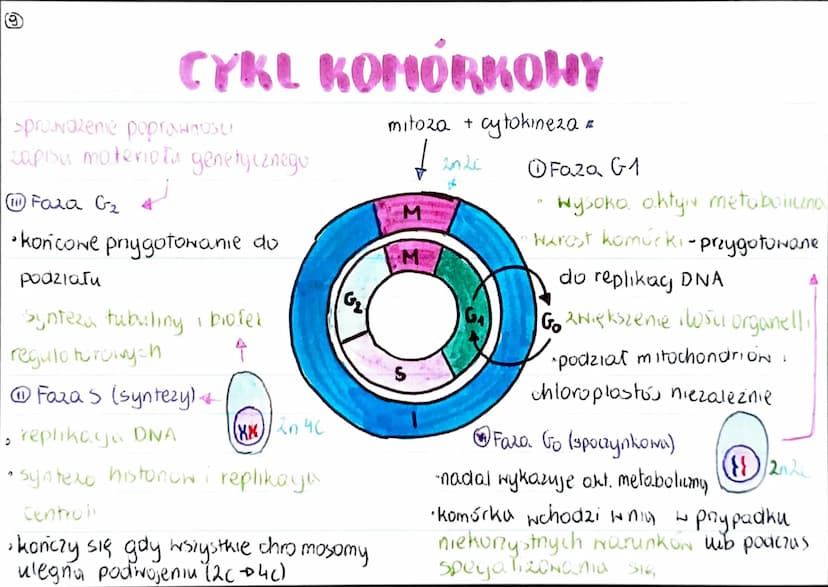 9
CYKL KOMÓRKOWY
sprawdzenie poprawności
zapisu materiału genetycznego
mitoza + cytokineza
2n2c
III Faza G2
• końcowe przygotowanie do
podziału
synteza tubuliny i białek
regulatorowych
II Faza S (syntezy)
• replikacja DNA
• synteza histonów i replikacja
centrioli
• kończy się gdy wszystkie chromosomy
ulegną podwojeniu (2c → 4c)
2n 4c
M
M
G2
G1
S
I
G0
I Faza G1
• wysoka aktyw metaboliczna
wzrost komórki - przygotowane
do replikacj DNA
zwiększenie ilości organelli
• podział mitochondriów i
chloroplastów niezależnie
Faza G0 (spoczynkowa)
- nadal wykazuje akt. metaboliczną
• komórka wchodzi w nią w przypadku
niekorzystnych warunków lub podczas
specjalizowania się
2n2c